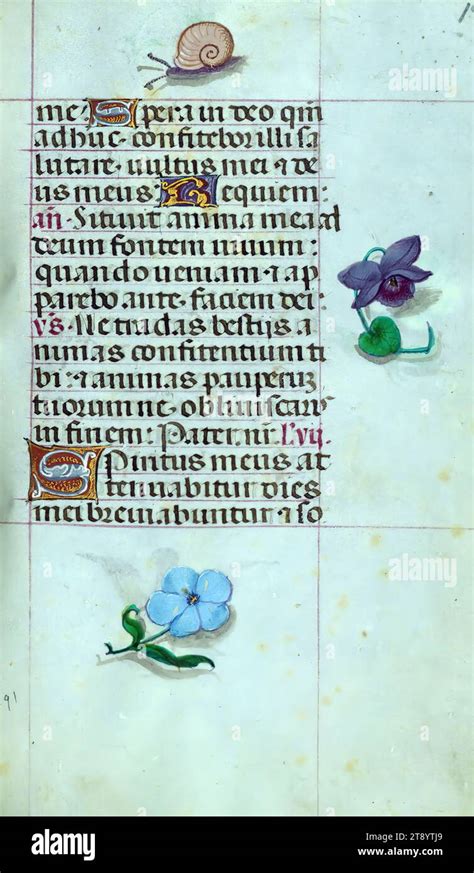 me: Spera in deo qm̄
adhuc confitebor illi sa
lutare vultus mei ⁊ de
us meus: Requiem:
an̄. Sitivit anima mea ad
deum fontem vivum:
quando veniam ⁊ ap
parebo ante faciem dei:
v̄s. Ne tradas bestijs a
nimas confitentium ti
bi: ⁊ animas pauperum
tuorum ne obliviscaris
in finem: Pater nr̄ l'vii.
Spiritus meus at
tenuabitur dies
mei breviabuntur ⁊ so
91
alamy
alamy
alamy
alamy
Image ID: 2T8YTJ9
www.alamy.com